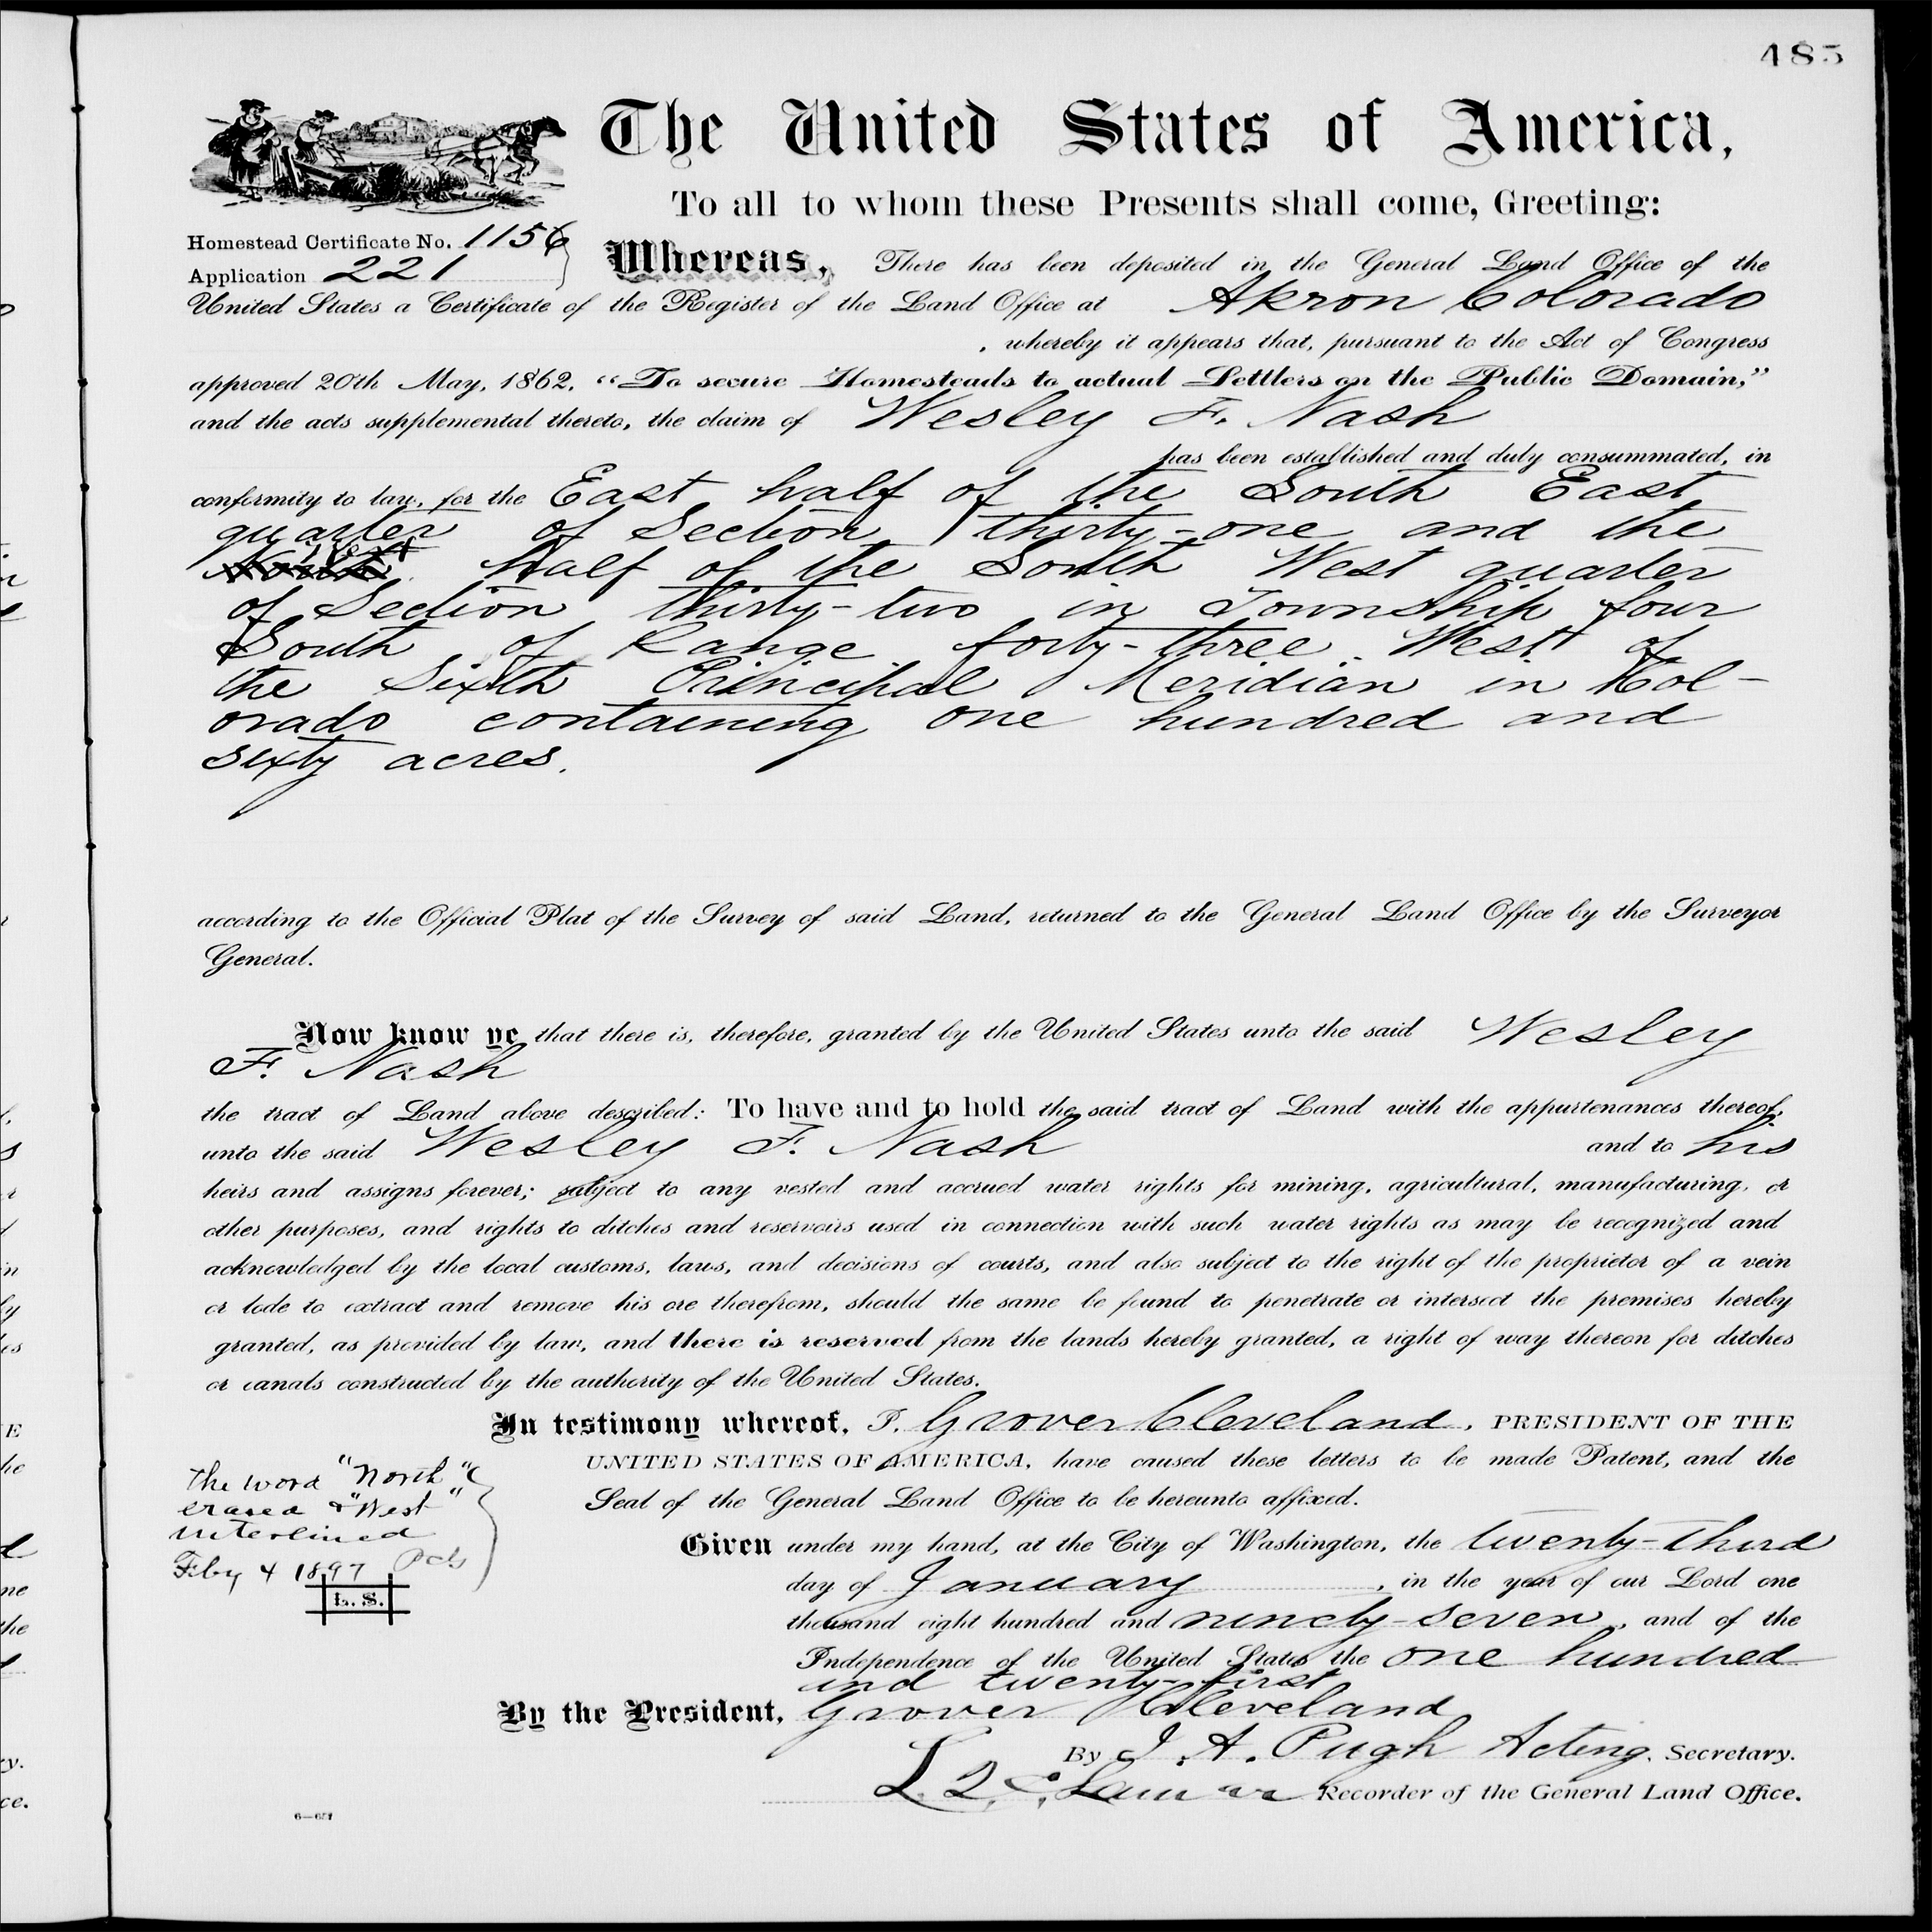 485
The United States of America,
To all to whom these Presents shall come, Greeting:
Homestead Certificate No. 1156
Application 221
Whereas, There has been deposited in the General Land Office of the
United States a Certificate of the Register of the Land Office at Akron Colorado
, whereby it appears that, pursuant to the Act of Congress
approved 20th May, 1862, "To secure Homesteads to actual Settlers on the Public Domain,"
and the acts supplemental thereto, the claim of Wesley F. Nash
has been established and duly consummated, in
conformity to law, for the East half of the South East
quarter of Section thirty-one and the
West
North half of the South West quarter
of Section thirty-two in Township four
South of Range forty-three West of
the Sixth Principal Meridian in Col-
orado containing one hundred and
sixty acres.
according to the Official Plat of the Survey of said Land, returned to the General Land Office by the Surveyor
General.
Now know ye that there is, therefore, granted by the United States unto the said Wesley
F. Nash
the tract of Land above described: To have and to hold the said tract of Land with the appurtenances thereof,
unto the said Wesley F. Nash and to his
heirs and assigns forever; subject to any vested and accrued water rights for mining, agricultural, manufacturing, or
other purposes, and rights to ditches and reservoirs used in connection with such water rights as may be recognized and
acknowledged by the local customs, laws, and decisions of courts, and also subject to the right of the proprietor of a vein
or lode to extract and remove his ore therefrom, should the same be found to penetrate or intersect the premises hereby
granted, as provided by law, and there is reserved from the lands hereby granted, a right of way thereon for ditches
or canals constructed by the authority of the United States.
In testimony whereof, I, Grover Cleveland, PRESIDENT OF THE
UNITED STATES OF AMERICA, have caused these letters to be made Patent, and the
Seal of the General Land Office to be hereunto affixed.
The word "North"
erased & "West"
interlined
Feby 4 1897
L. S.
Given under my hand, at the City of Washington, the twenty-third
day of January, in the year of our Lord one
thousand eight hundred and ninety-seven, and of the
Independence of the United States the one hundred
and twenty-first
By the President, Grover Cleveland
By J. A. Pugh Acting, Secretary.
L. Q. C. Lamar Recorder of the General Land Office.